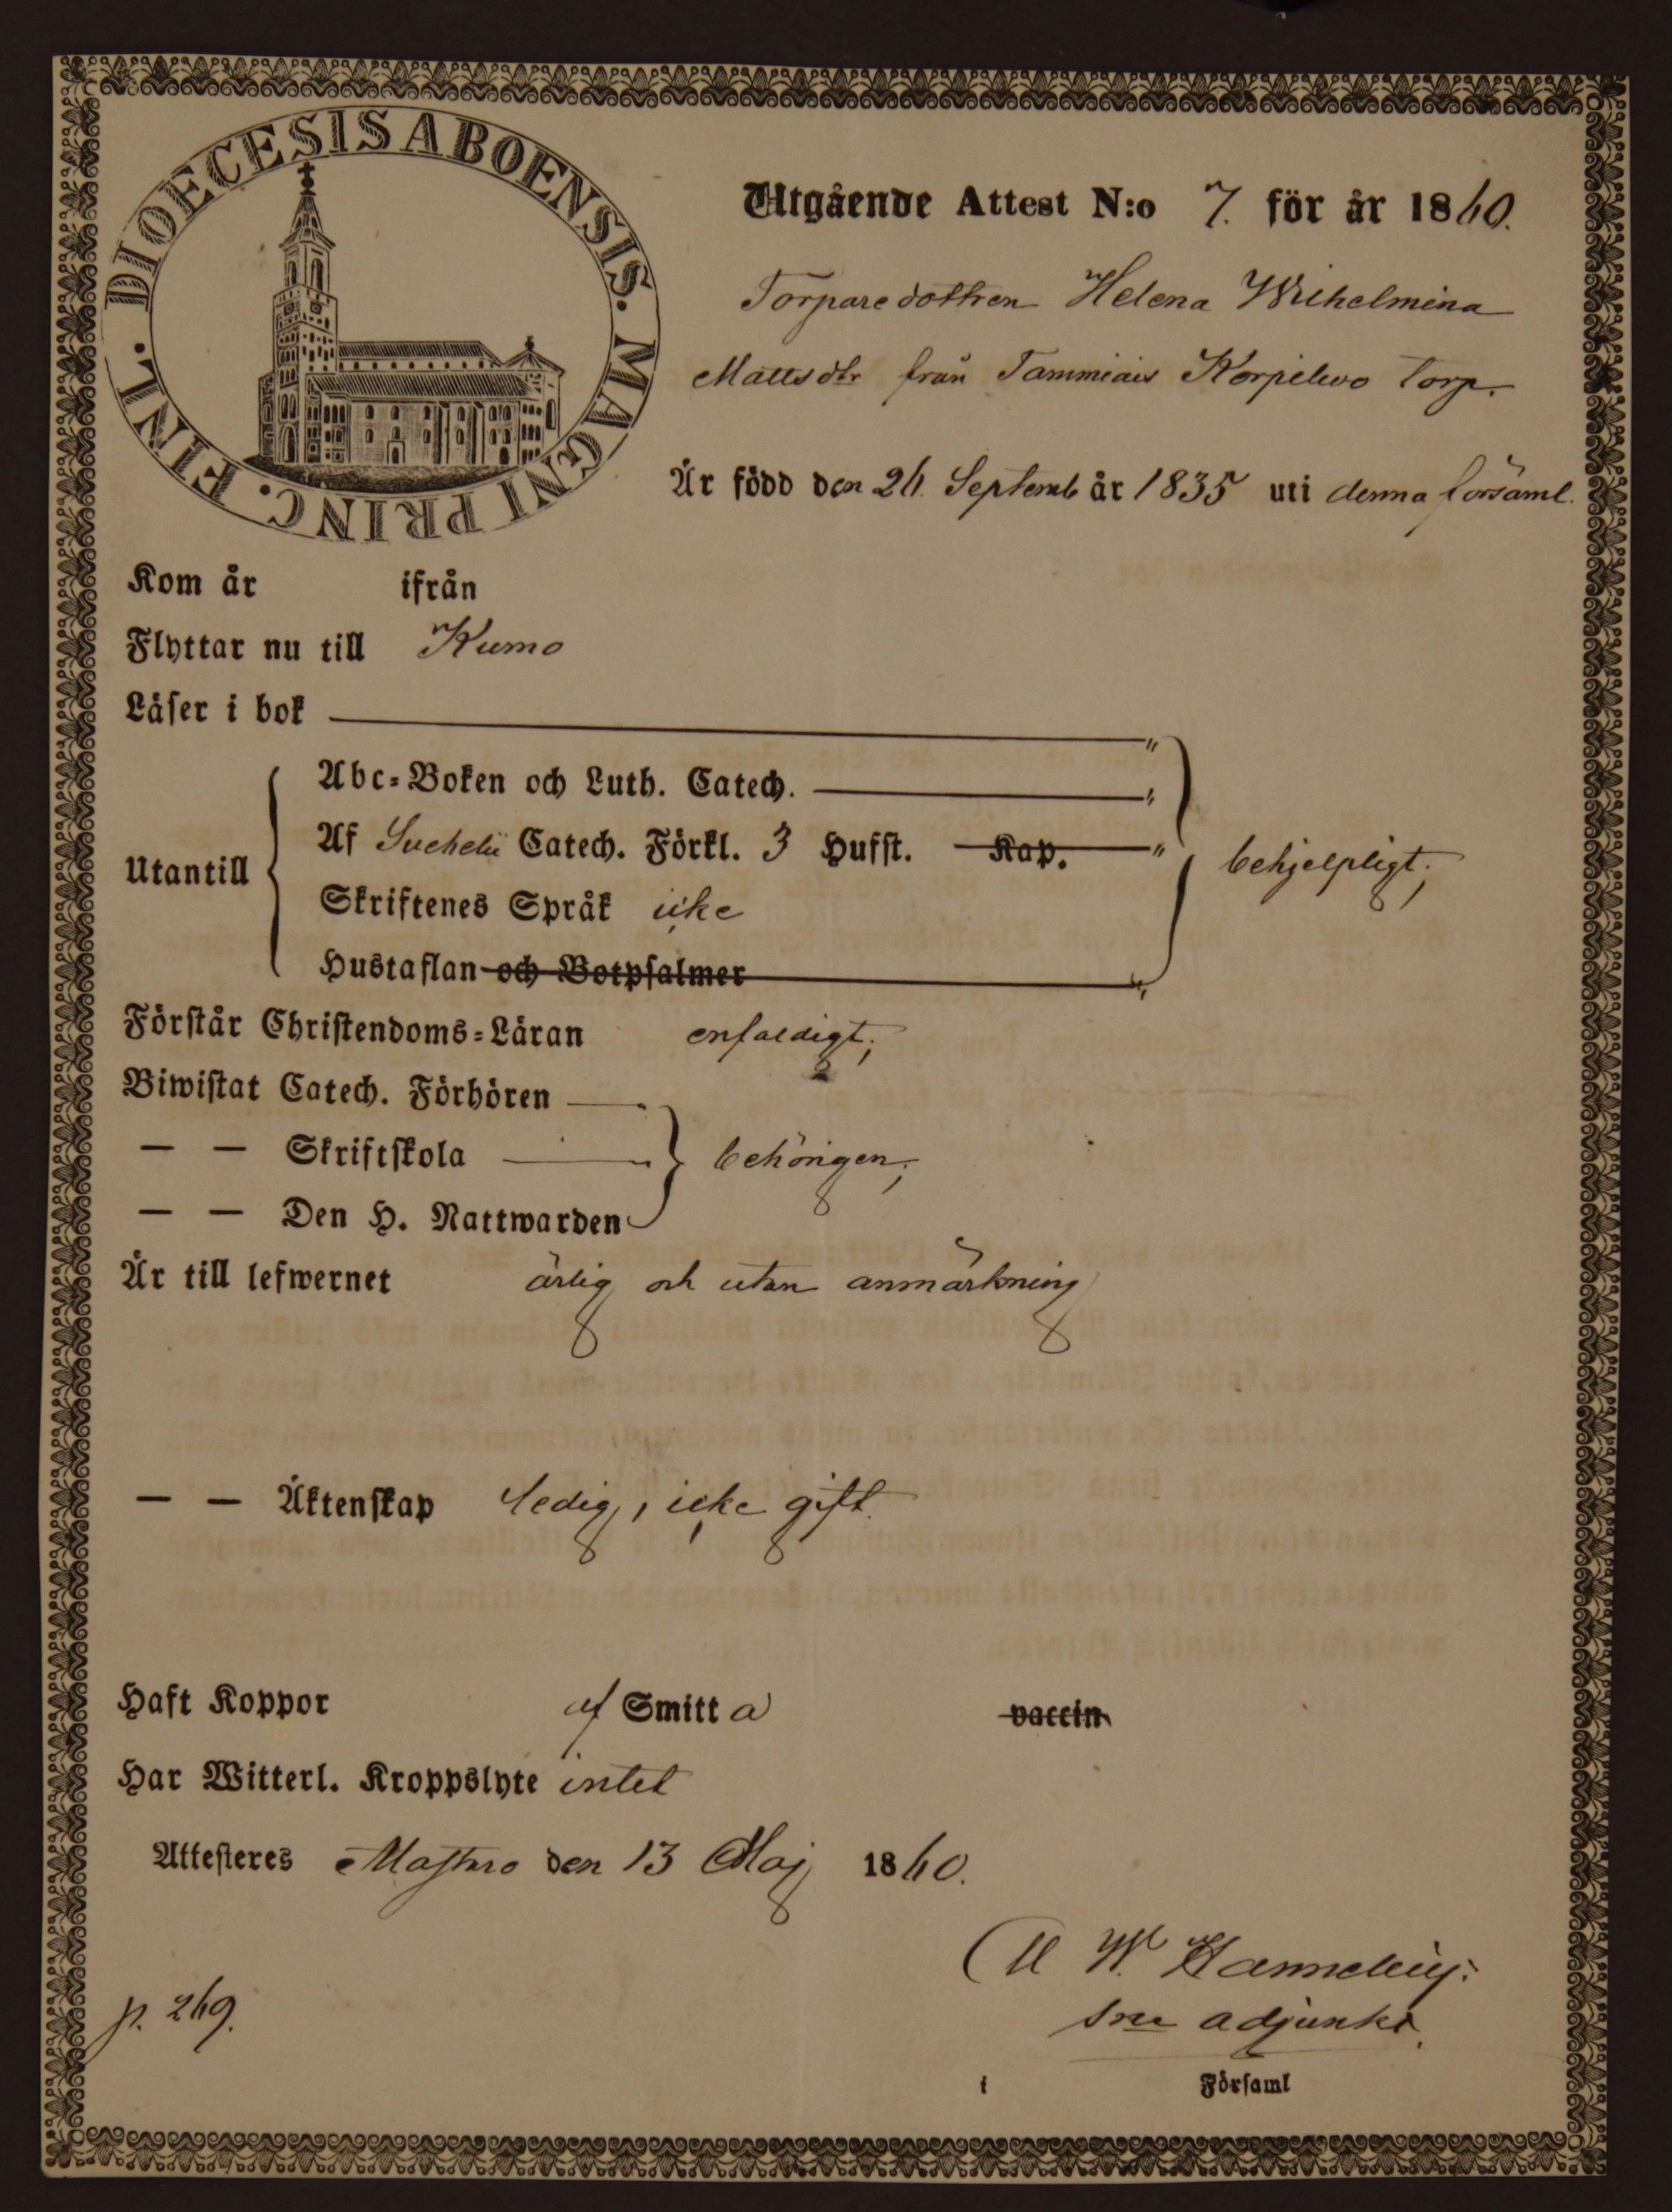 DIOECESIS ABOENSIS. MAGNI PRINC. FINL.
Utgående Attest N:o 7. för år 1860.
Torparedottren Helena Wilhelmina
Mattsdtr från Tammiais Korpilevo torp.
Är född den 26. Septemb år 1835 uti denna församl.
Kom år ifrån
Flyttar nu till Kumo
Läser i bok "
Utantill
Abc-Boken och Luth. Catech. "
Af Svebelii Catech. Förkl. 3 Hufst. Kap. " behjelpligt;
Skriftenes Språk icke
Hustaflan och Botpsalmer "
Förstår Christendoms-Läran enfaldigt;
Biwistat Catech. Förhören
— — Skriftskola behörigen;
— — Den H. Nattwarden
Är till lefwernet ärlig och utan anmärkning
— — Äktenskap ledig, icke gift.
Haft Koppor af Smitta vaccin
Har Witterl. Kroppslyte intet
Attesteres den 13 Maj 1860.
W.
p. 269. adjunkt.
i Församl